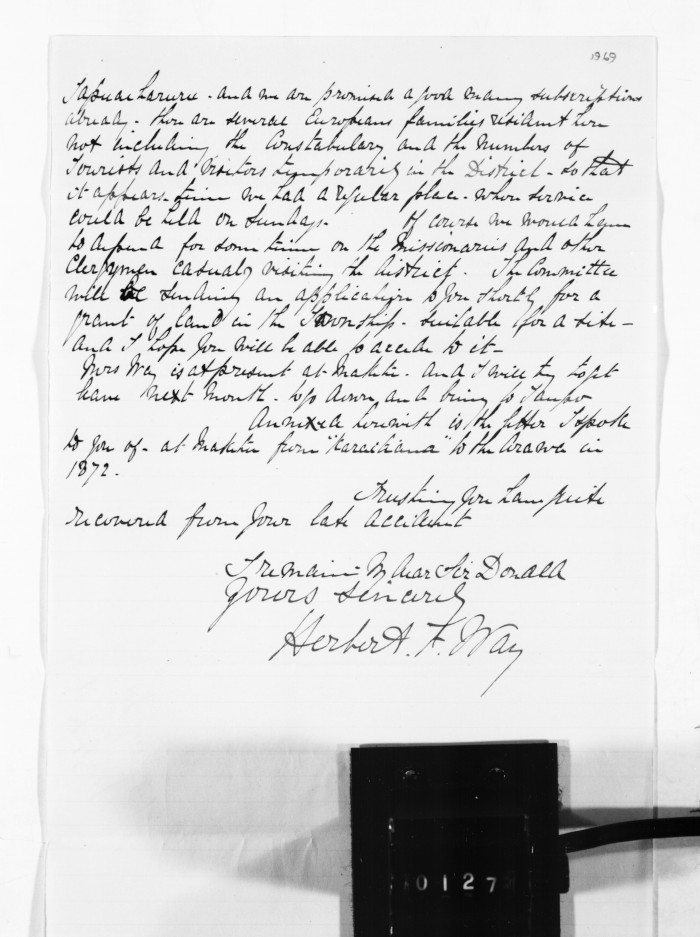 1969
Tapuaeharuru - and we are promised a good many subscriptions
abroad - there are several Europeans families resident here
not including the Constabulary and the numbers of
Tourists and Visitors temporarily in the District - so that
it appears time we had a regular place - where service
could be held on Sundays. Of course we would have
to depend for some time on the Missionaries and other
Clergymen casually visiting the district. The Committee
will be sending an application to you shortly for a
grant of land in the Township - suitable for a site -
and I hope you will be able to accede to it -
Mrs Way is at present at Maketu - and I will try to get
leave next month - to go down and bring to Taupo
Annexed herewith is the letter I spoke
to you of - at Maketu from to the Arawa in
1872.
Trusting you have quite
recovered from your late accident
I remain My dear Sir Donald
Yours sincerely
Herbert. F. Way
0127